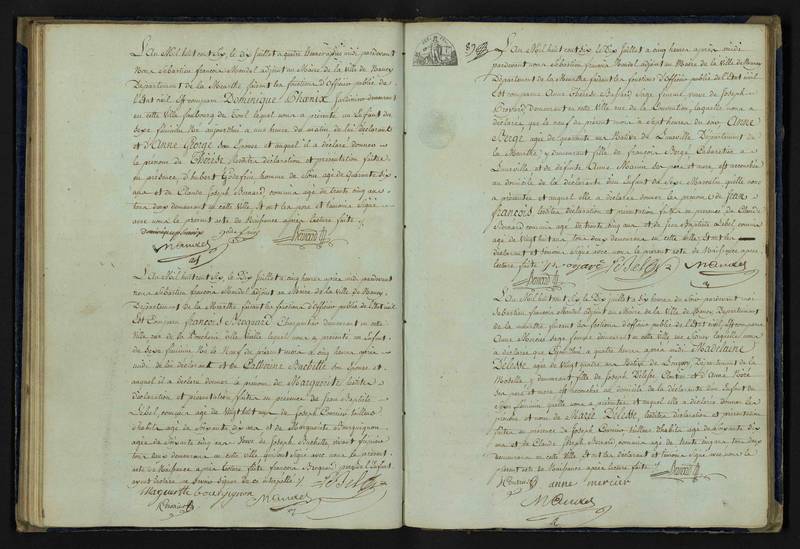 L'An Mil huit cent six, le dix juillet a quatre heures après midi pardevant
Nous Sébastien françois Mandel adjoint au Maire de la Ville de Nancy
Département de la Meurthe faisant les fonctions d'officier public de
l'état civil Est comparu Dominique Phanix Jardinier demeurant
en cette Ville faubourg de Toul lequel nous a présenté un Enfant du
Sexe féminin Né aujourd'hui a une heure du matin de lui déclarant
et d'Anne George Son Epouse et auquel il a déclaré donner
le prénom de Thérèse lesdites déclaration et présentation faites
en présence d'hubert Godefrin homme de âgé de Quarante six
ans et de Claude Joseph Benard commis âgé de trente cinq ans
tous deux demeurant en cette Ville, Et ont les père et témoins Signé
avec nous le présent acte de Naissance après lecture faite
dominique phanix
Mandel
Benard
L'An Mil huit cent six, le Dix juillet a cinq heures après midi, pardevant
nous Sébastien françois Mandel adjoint au Maire de la Ville de Nancy
Département de la Meurthe faisant les fonctions d'officier public de l'état civil
Est Comparu françois Bregeard Charpentier demeurant en cette
Ville rue de la Boucherie Ville Vieille lequel nous a présenté un Enfant
du Sexe féminin Né le Neuf du présent mois a cinq heures après
midi de lui déclarant et de Catherine Bachelle Son Epouse et
auquel il a déclaré donner le prénom de Marguerite lesdites
déclaration et présentation faites en présence de Jean Baptiste
Lebel, commis âgé de Vingt huit ans de Joseph tailleur
d'habits âgé de Soixante dix ans et de Marguerite Bourguignon
âgée de Soixante cinq ans Veuve de Joseph Bachelle, vivant
tous deux demeurant en cette ville, qui ont Signé avec nous le présent
acte de Naissance après lecture faite françois Bregeard père de l'Enfant
ayant déclaré ne Savoir Signer de ce interpellé
Marguerite bourguignon
Mandel
Lebel
L'An Mil huit cent six, le Dix juillet a cinq heures après midi
pardevant nous Sébastien françois Mandel adjoint au Maire de la Ville de Nancy
Département de la Meurthe faisant les fonctions d'officier public de l'état civil
Est comparue Anne Thérèse Sage femme veuve de Joseph
demeurant en cette Ville rue de la Convention, laquelle nous a
déclaré que le neuf du présent mois à Sept heures du Soir Anne
Bergé âgée de quarante ans Native de Lunéville Département de
la Meurthe y demeurant fille de françois Bergé Cabaretier a
Lunéville, et de défunte Anne Marin Ses père et mère, est accouchée
au domicile de la déclarante d'un Enfant du Sexe Masculin qu'elle nous
a présenté et auquel elle a déclaré donner les prénoms de Jean
françois, lesdites déclaration et présentation faites en présence de Claude
Benard commis âgé de trente cinq ans et de Jean Baptiste Lebel, commis
âgé de Vingt huit ans tous deux demeurant en cette Ville. Et ont les
déclarante et témoins Signé avec nous le présent acte de Naissance après
lecture faite
Lebel
Mandel
Benard
L'An Mil huit cent six le Dix juillet a Six heures du Soir pardevant nous
Sébastien françois Mandel adjoint au Maire de la Ville de Nancy, Département
de la Meurthe faisant les fonctions d'officier public de l'état civil, Est comparue
Anne Mercier Sage femme demeurant en cette Ville laquelle nous
a déclaré que a quatre heures après midi Madelaine
Délesse âgée de Vingt quatre ans Native de Département de la
Moselle y demeurant fille de Joseph Délesse et d'Anne
Ses père et mère est accouchée au domicile de la déclarante d'un Enfant du
Sexe féminin qu'elle nous a présenté et auquel elle a déclaré donner les
prénom et nom de Marie Delesse, lesdites déclaration et présentation
faites en présence de Joseph tailleur d'habits âgé de Soixante dix
ans et de Claude Joseph Benard commis âgé de trente cinq ans tous deux
demeurant en cette ville Et ont les déclarante et témoins Signé avec nous le
présent acte de Naissance après lecture faite
Benard
anne mercier
Mandel